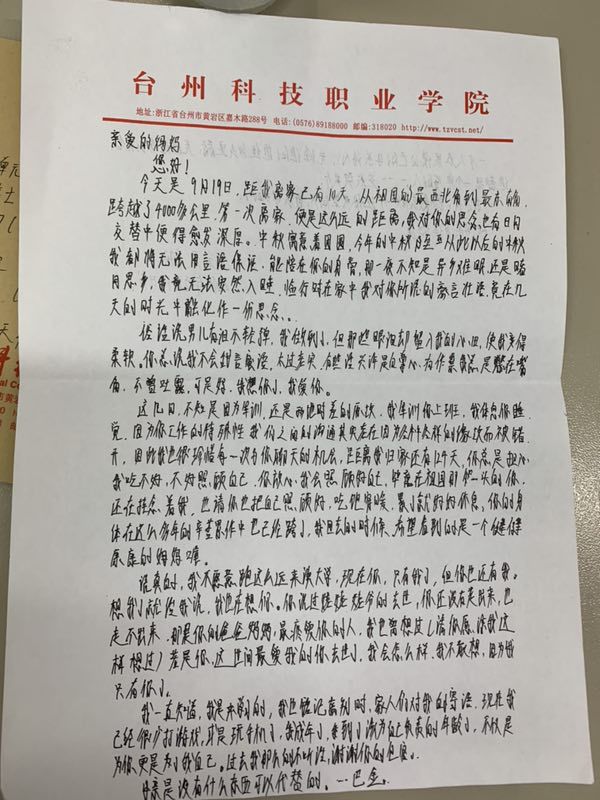 台州科技职业学院
地址:浙江省台州市黄岩区嘉木路288号 电话:(0576)89188000 邮编:318020 http://www.tzvcst.net/
亲爱的妈妈
您好!
今天是9月19日,距我离家已有10天,从祖国的最西北角到最东南
跨越了4000多公里,第一次离家,便是这么远的距离,我对你的思念,也在日月
交替中便得愈发深厚。中秋寓意着团圆,今年的中秋乃至从此以后的中秋
我都将无法用言语保证,能陪在你的身旁,那一夜不知是异乡难眠还是睹
月思乡,我竟无法安然入睡,临行时在家中我对你所说的豪言壮语竟在几
天的时光中融化作一份思念。
俗话说男儿有泪不轻弹,我做到了,但那些眼泪却留入我的心里,使我变得
柔软。你总说我不会甜言蜜语,太过老实,有些话
角,不曾吐露,可是妈,我想你了,我爱你。
这几日,不知是因为军训,还是两地时差的原故,我军训你上班,我休息你睡
觉,因为你工作的特殊性我们之间的沟通其实是在因为各种各样的缘故而被错
开,因此我也很珍惜每一次与你聊天的机会,距离我归家还有129天,你总是担心
我吃不好,不好照顾自己,你放心,我会照顾好自己,毕竟在祖国那一头的你,
还在挂念着我,也请你也把自己照顾好,吃饱穿暖,累了就好好休息,你的身
体在这么多年的辛苦累作中已经垮了,我回去的时候,希望看到的是一个健健
康康的妈妈嘛。
说真的,我不愿意跑这么远来读大学,现在你,只有我了,但你也还有我。
想我了就给我说,我也在想你。你说过爷爷奶奶的去世,你还没有走出来,也
走不出来,那是你的爸爸妈妈,最疼爱你的人,我也曾想过(请你原谅我这
样想过)若是你,这世间最爱我的你去世了,我会怎么样,我不敢想,因为我
只有你了。
我一直知道,我是来学的,我也谨记离别时,家人们对我的寄语,现在我
已经很少打游戏,耳是玩手机了,我成年了,来到了该为自己负责的年龄了,不仅是
为你更是为了我自己。过去我那么的不听话,谢谢你的包容。
母亲是没有什么东西可以代替的。——巴金。